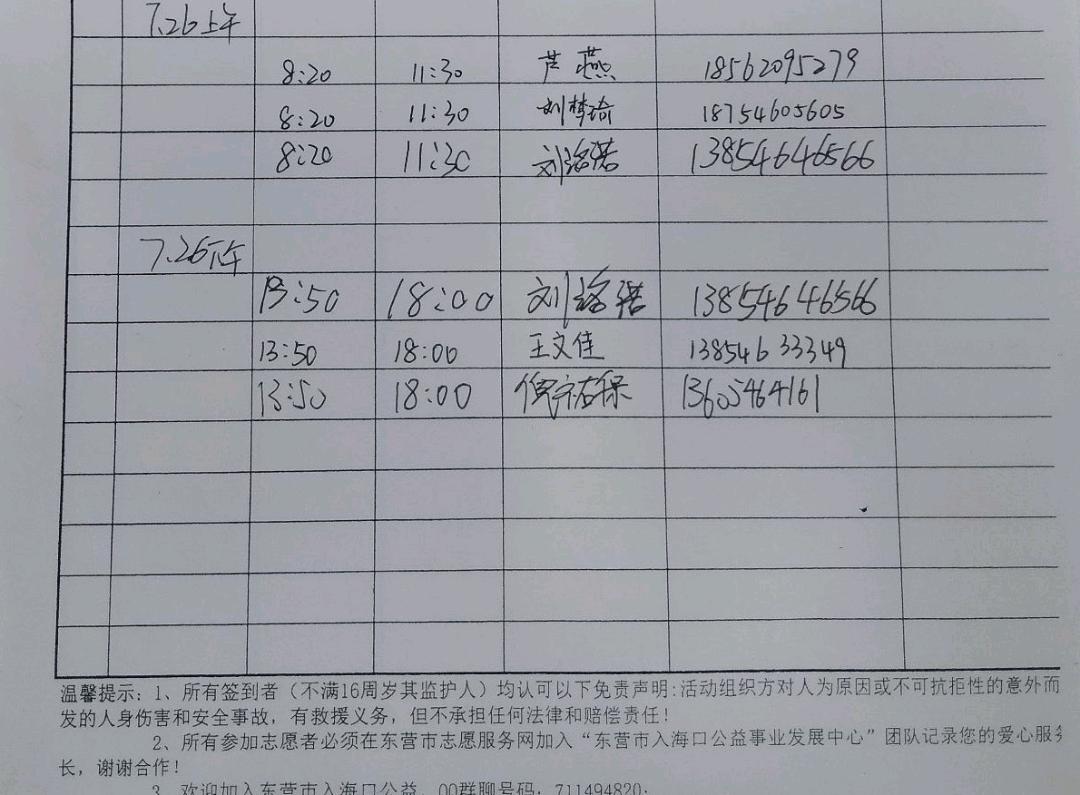 7.26上午
8:20 11:30 芦燕 18562095279
8:20 11:30 刘梦琦 18754605605
8:20 11:30 刘洺诺 13854646566
7.26下午
13:50 18:00 刘洺诺 13854646566
13:50 18:00 王文佳 13854633349
13:50 18:00 倪祐保 13605464161
温馨提示：1、所有签到者（不满16周岁其监护人）均认可以下免责声明:活动组织方对人为原因或不可抗拒性的意外而
发的人身伤害和安全事故，有救援义务，但不承担任何法律和赔偿责任！
2、所有参加志愿者必须在东营市志愿服务网加入“东营市入海口公益事业发展中心”团队记录您的爱心服务
长，谢谢合作！
3、欢迎加入东营市入海口公益，QQ群聊号码：711494820；